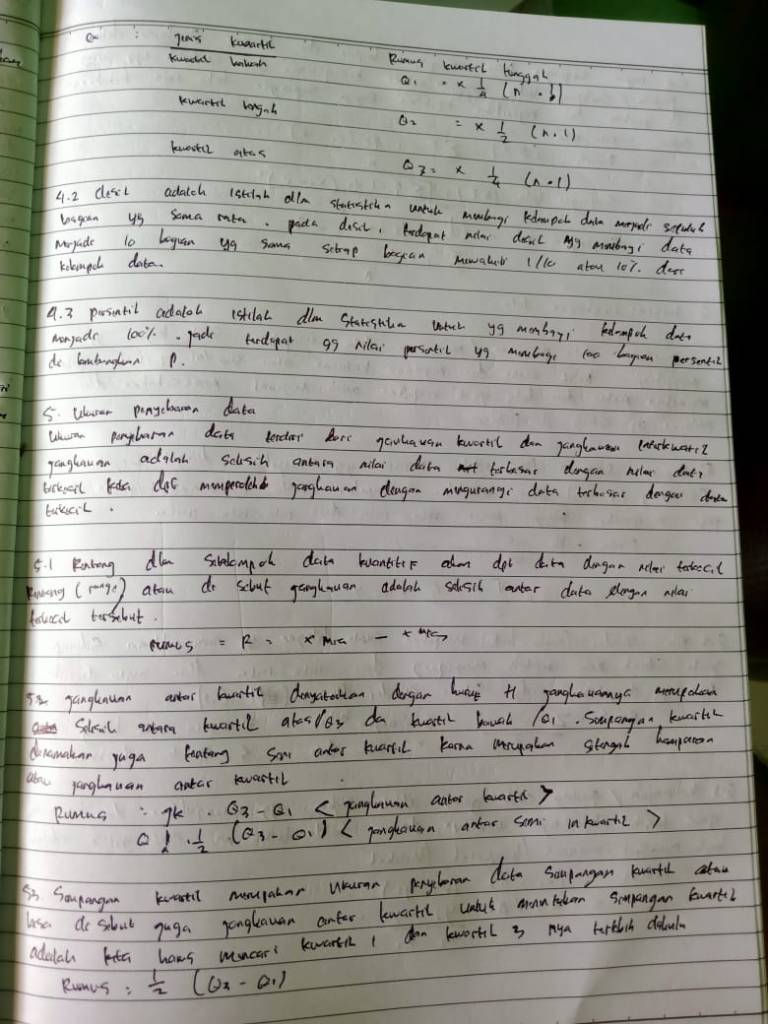 Jenis kwartil
Rumus kwartil tunggal
kwartil bawah Q1 = x 1/4 (n + 1)
kwartil tengah Q2 = x 1/2 (n + 1)
kwartil atas Q3 = x 1/4 (n + 1)
4.2 desil adalah istilah dlm statistika untuk membagi kelompok data menjadi sepuluh
bagian yg sama rata. pada desil, terdapat nilai desil yg membagi data
menjadi 10 bagian yg sama setiap bagian mewakili 1/10 atau 10% dari
kelompok data.
4.3 persentil adalah istilah dlm statistika untuk yg membagi kelompok data
menjadi 100%. jadi terdapat 99 nilai persentil yg membagi 100 bagian persentil
di lambangkan P.
5. Ukuran penyebaran data
Ukuran penyebaran data terdiri dari jangkauan kwartil dan jangkauan interkwartil
jangkauan adalah selisih antara nilai data terbesar dengan nilai data
terkecil kita dpt memperoleh jangkauan dengan mengurangi data terbesar dengan data
terkecil.
5.1 Rentang dlm sekelompok data kuantitif akan dpt data dengan nilai terkecil
Rentang (range) atau di sebut jangkauan adalah selisih antar data dengan nilai
terkecil tersebut.
Rumus = R = x -
5.2 jangkauan antar kwartil dinyatakan dengan huruf H jangkauannya merupakan
selisih antara kwartil atas/Q3 dan kwartil bawah /Q1. Simpangan kwartil
dinamakan juga rentang semi antar kwartil karna merupakan setengah hamparan
atau jangkauan antar kwartil
Rumus : jk . Q3 - Q1 < jangkauan antar kwartil >
Q 1/2 (Q3 - Q1) < jangkauan antar semi in kwartil >
5.3 Simpangan kwartil merupakan ukuran penyebaran data Simpangan kwartil atau
bisa di sebut juga jangkauan antar kwartil untuk menentukan simpangan kwartil
adalah kita harus mencari kwartil 1 dan kwartil 3 nya terlebih dahulu
Rumus : 1/2 (Q3 - Q1)